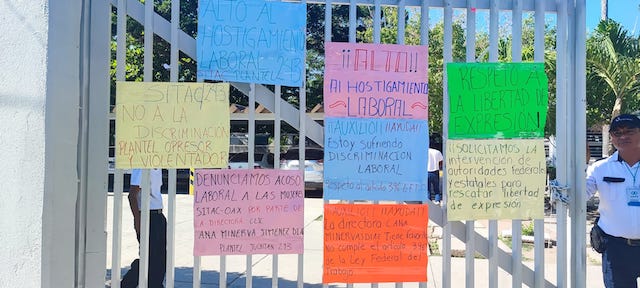 ALTO Al
HOSTIGAMIENTO
LABORAL
PLANTEL 293
SITAC 293
NO A LA
DISCRIMINACIÓN
PLANTEL OPRESOR
Y VIOLENTADOR
DENUNCIAMOS ACOSO
LABORAL A LAS MUJERES
SITAC-OAX POR PARTE DE
LA DIRECTORA
ANA MINERVA SIMENEZ DIAZ
PLANTEL 293
¡¡ALTO!!
Al HOSTIGAMIENTO
LABORAL
¡¡AUXILIO!! ¡¡AYUDA!!
Estoy sufriendo
DISCRIMINACIÓN
LABORAL
Respeto al artículo
¡¡AUXILIO!! ¡¡AYUDA!!
La directora ANA
MINERVA
no cumple el artículo
de la Ley Federal del
Trabajo
RESPETO A
LA LIBERTAD DE
EXPRESIÓN!
¡¡SOLICITAMOS LA
intervención de
autoridades Federales
y estatales para
rescatar libertad
de expresión!!